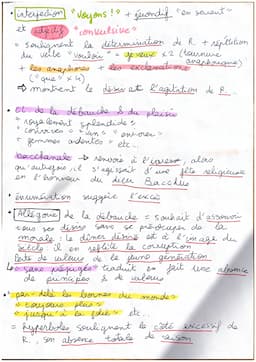 interjection "Voyons !" + gérondif "en souvent"
et adjectif "convulsive"
= soulignent la détermination de R + répétition
du verbe "vouloir" "je veux" x2 (tournure
anaphorique)
+ les anaphores + les exclamations
("que" x 4)
⇒ montrent le désir et l'agitation de R.
• et de la débauche & du plaisir
"royalement splendide"
"convives" "vins"
"femmes ardentes" etc..
bacchanale → renvoie à l'ivresse, alors
qu'autrefois, il s'agissait d'une fête religieuse
en l'honneur du dieu Bacchus
énumération suggère l'excès
• Allégorie de la débauche = souhait d'assouvir
tous ses désirs sans se préoccuper de la
morale : le dîner désiré est à l'image du
siècle & en reflète la corruption
perte de valeurs de la jeune génération
"sans préjugés" traduit en fait une absence
de principes & de valeurs
• "par-delà les bornes du monde"
"toujours plus"
"jusqu'à la folie" etc..
= hyperboles soulignent le côté excessif de
R., son absence totale de raison